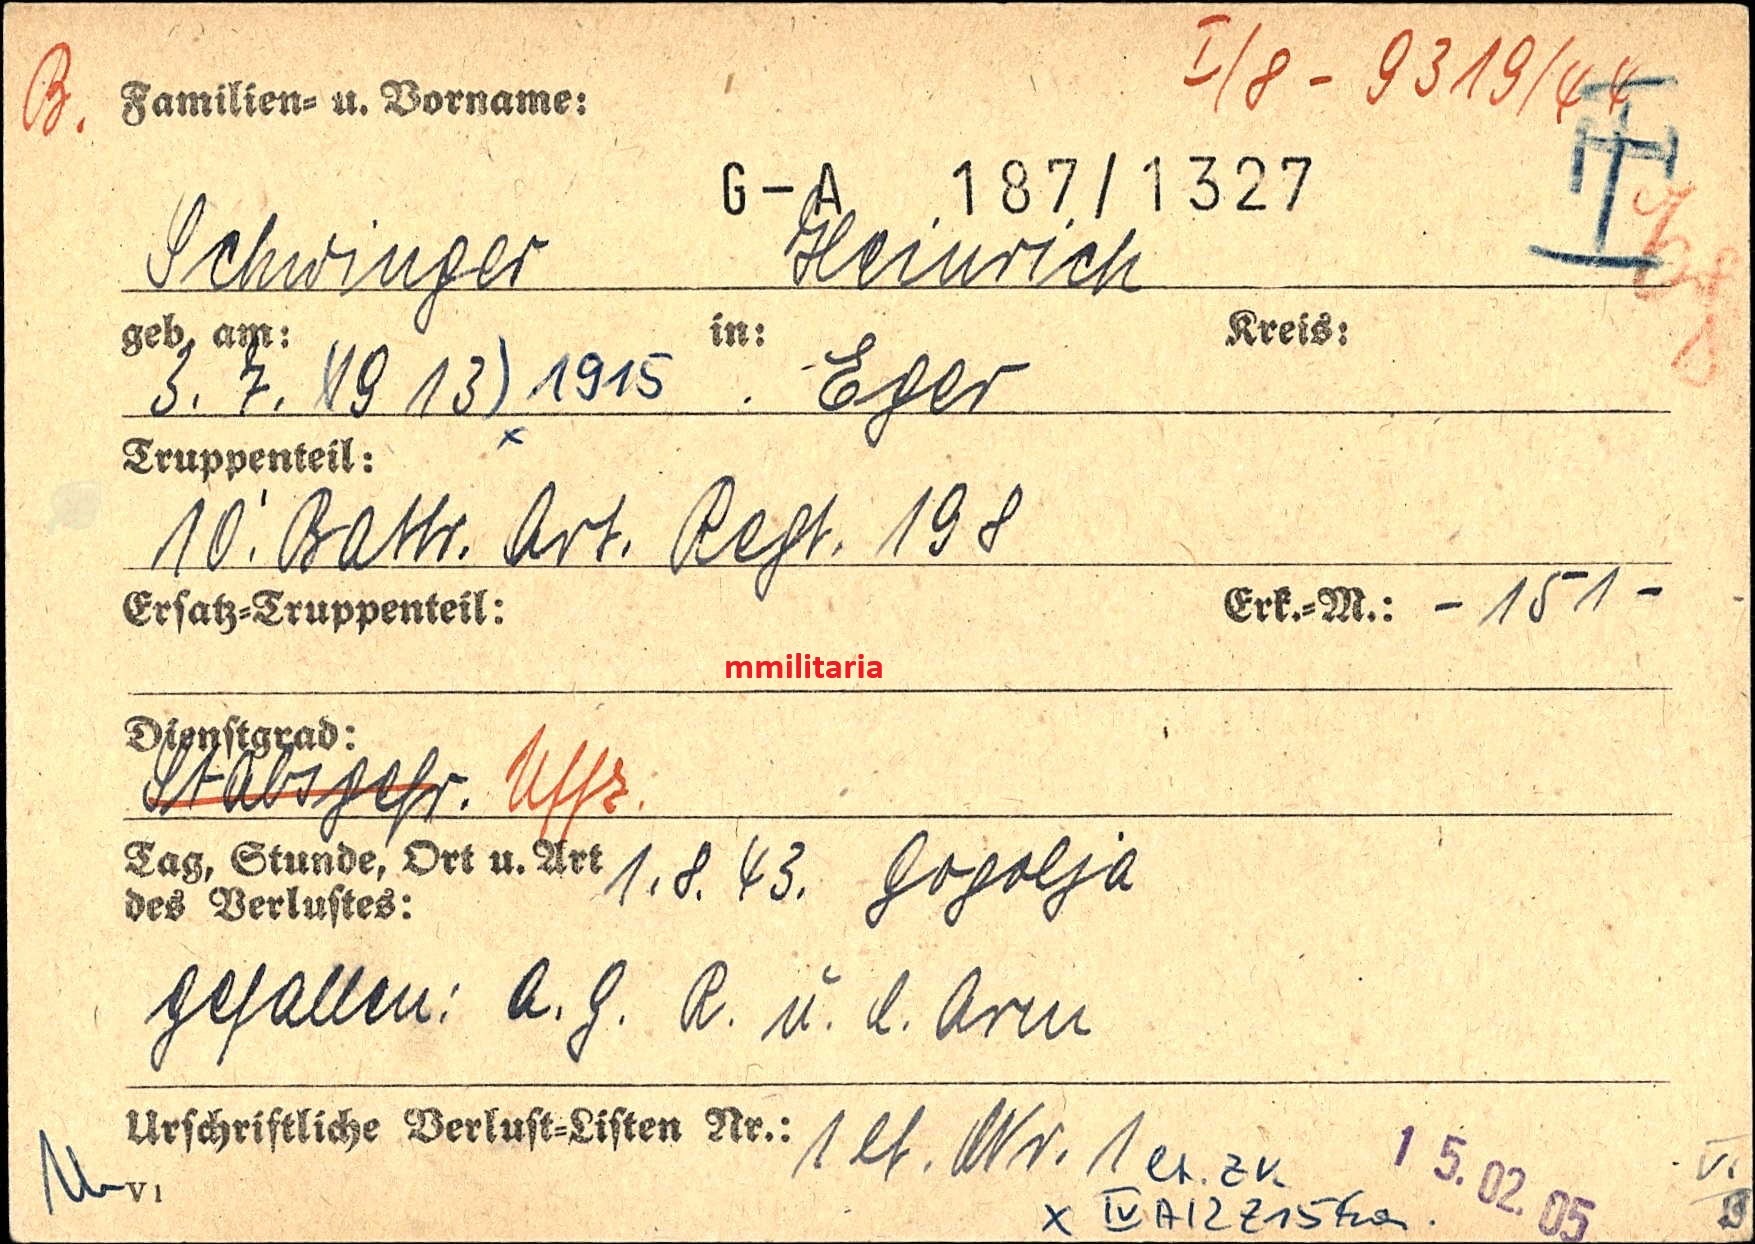 B. Familien- u. Vorname: I/8 - 9319/44
G-A 187/1327
Schwinger Heinrich
geb. am: in: Kreis:
3. 7. (1913) 1915 Eger
x
Truppenteil:
10. Battr. Art. Regt. 198
Ersatz-Truppenteil: Erk.-M.: - 151 -
mmilitaria
Dienstgrad:
Stabsgefr. Uffz.
Tag, Stunde, Ort u. Art 1. 8. 43. Gogolja
des Verlustes:
gefallen: A. G. R. u. l. Arm
Urschriftliche Verlust-Listen Nr.: 1 lf. Nr. 1
15.02.05
V1
x IV A